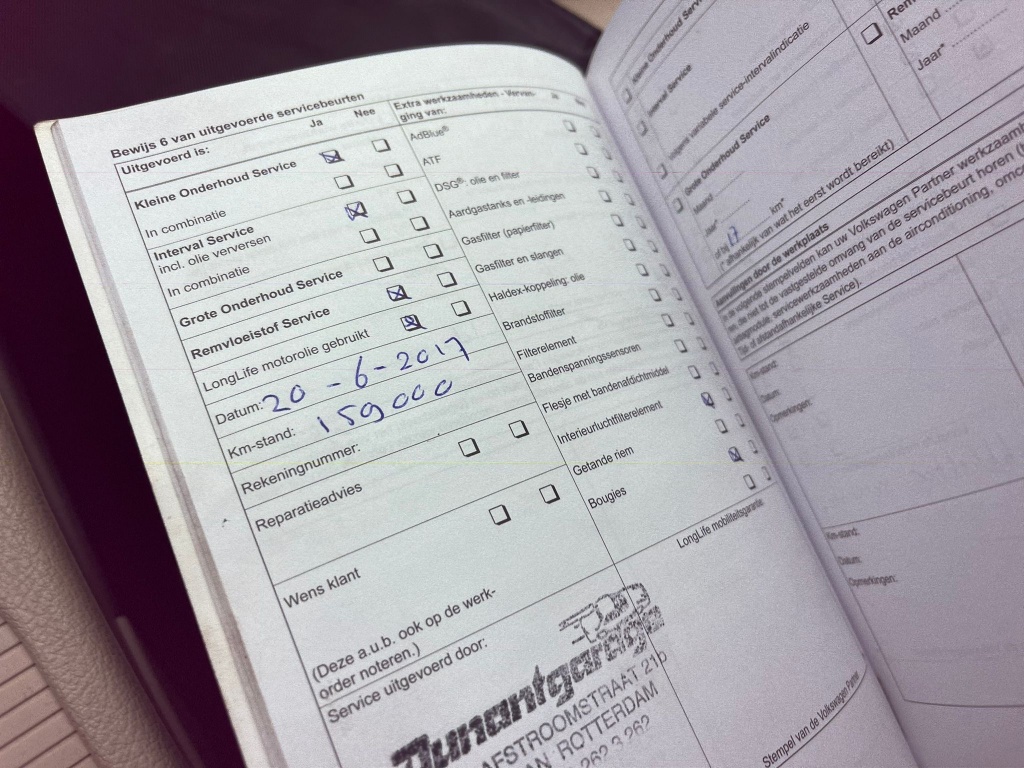 Bewijs 6 van uitgevoerde servicebeurten
Uitgevoerd is:
Ja Nee
Kleine Onderhoud Service
In combinatie
Interval Service
incl. olie verversen
In combinatie
Grote Onderhoud Service
Remvloeistof Service
LongLife motorolie gebruikt
Datum: 20-6-2017
Km-stand: 159000
Rekeningnummer:
Reparatieadvies
Wens klant
(Deze a.u.b. ook op de werk-
order noteren.)
Service uitgevoerd door:
Extra werkzaamheden - Vervan-
ging van:
Ja
AdBlue®
ATF
DSG®: olie en filter
Aardgastanks en -leidingen
Gasfilter (papierfilter)
Gasfilter en slangen
Haldex-koppeling: olie
Brandstoffilter
Filterelement
Bandenspanningssensoren
Flesje met bandenafdichtmiddel
Interieurluchtfilterelement
Getande riem
Bougies
LongLife mobiliteitsgarantie
Dunantgarage
AFSTROOMSTRAAT 21b
ROTTERDAM
262 3 262
Stempel van de Volkswagen Partner
Kleine Onderhoud Service
Interval Service
Volgens variabele service-intervalindicatie
Grote Onderhoud Service
Maand
km*
of bij 17
(*afhankelijk van wat het eerst wordt bereikt)
Maand
Jaar*
Aanwijzingen door de werkplaats
volgende stempelvelden kan uw Volkswagen Partner
die niet tot de vastgestelde omvang van de servicebeurt horen
servicewerkzaamheden aan de airconditioning,
of afstandafhankelijke Service).
Km-stand:
Datum:
Opmerkingen:
Km-stand:
Datum:
Opmerkingen: